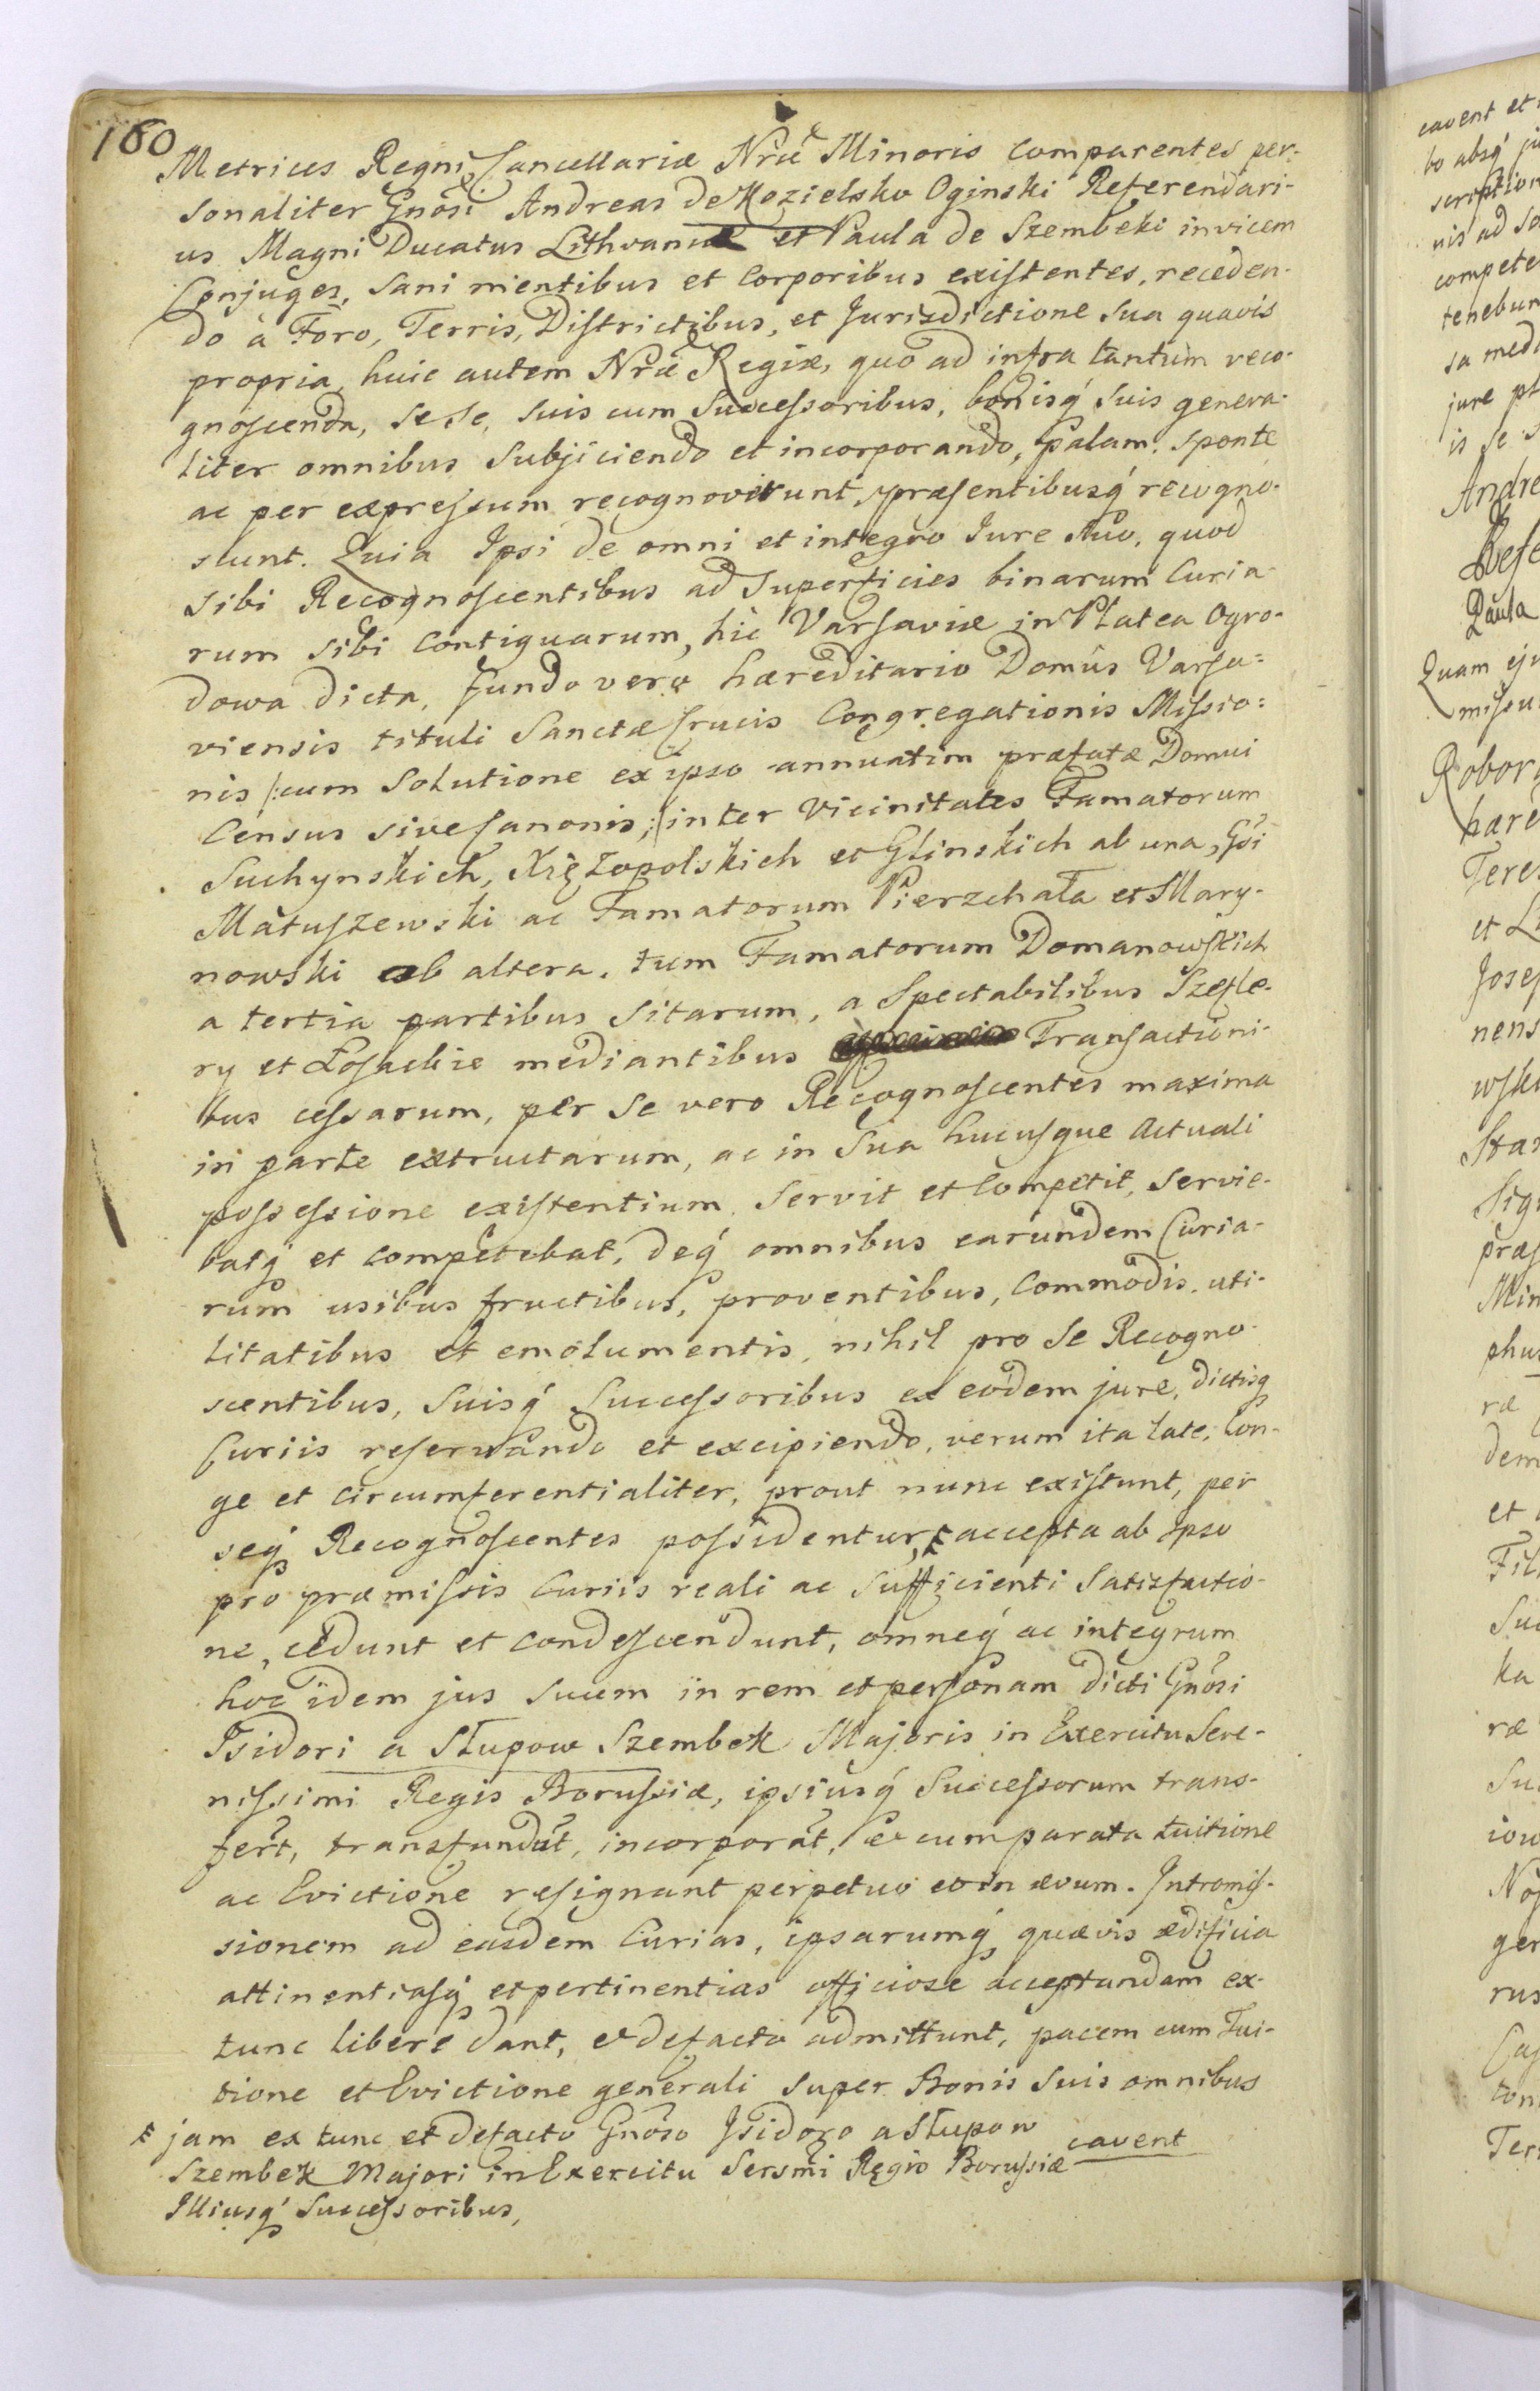 160
Metrices Regni Cancellariæ Nræ Minoris Comparentes per-
sonaliter Gnosi Andreas de Kozielsko Oginski Referendari-
us Magni Ducatus Lithvaniæ et Paula de Szembeki invicem
Conjuges, sani mentibus et Corporibus existentes, receden-
do à Foro, Terris, Districtibus, et Jurisdictione sua quavis
propria, huic autem Nræ Regiæ, quo ad infra tantùm reco-
gnoscenda, se se, suis cum Successoribus, bonisq́ suis genera-
liter omnibus Subjiciendo et incorporando, palam, sponte
ac per expressum recognoverunt, præsentibusq́ recogno-
scunt. Quia Ipsi de omni et integro Jure suo, quod
sibi Recognoscentibus ad Superficies binarum Curia-
rum sibi Contiguarum, hic Varsaviæ in Platea Ogro-
dowa dicta, Fundo vero hæreditario Domûs Varsa-
viensis tituli Sanctæ Crucis Congregationis Missio-
nis /:cum Solutione ex ipso annuatim præfatæ Domui
Census sive Canonis,:/ inter Vicinitates Famatorum
Suchynskich, Xiężopolskich et Glinskich ab una, Gsi
Matuszewski ac Famatorum Pierzchała et Mary-
nowski ab altera, tum Famatorum Domanowskich
a tertia partibus Sitarum, a Spectabilibus Szefle-
ry et Łosackie mediantibus Transactioni-
bus cessarum, per se vero Recognoscentes maxima
in parte extructarum, ac in Sua hucusque Actuali
possessione existentium, Servit et Competit, servie-
batq́ et competebat, deq́ omnibus earundem Curia-
rum usibus fructibus, proventibus, Commodis, uti-
litatibus et emolumentis, nihil pro se Recogno-
scentibus, Suisq́ Successoribus ex eodem jure, dictisq́
Curiis reservando et excipiendo, verum ita late, lon-
ge et circumferentialiter, prout nunc existunt, per
seq́ Recognoscentes possidentur, ⌗ accepta ab Ipso
pro præmissis Curiis reali ac sufficienti Satisfactio-
ne, cedunt et condescendunt, omneq́ ac integrum
hoc idem jus suum in rem et personam dicti Gnosi
Isidori a Słupow Szembek Majoris in Exercitu Sere-
nissimi Regis Borussiæ, ipsiusq́ Successorum trans-
fert, transfundũt, incorporãt, & cum parata tuitione
ac Evictione resignant perpetuo et in ævum. Intromis-
sionem ad easdem Curias, ipsarumq́ quævis ædificia
attinentiasq́ et pertinentias officiose acceptandam ex-
tunc libere dant, et de facto admittunt, pacem cum Tui-
tione et Evictione generali super Bonis suis omnibus
cavent
⌗ jam ex tunc et de facto Gnoso Isidoro a Słupow
Szembek Majori in Exercitu Sersmi Regis Borussiæ
Illiusq́ Successoribus,